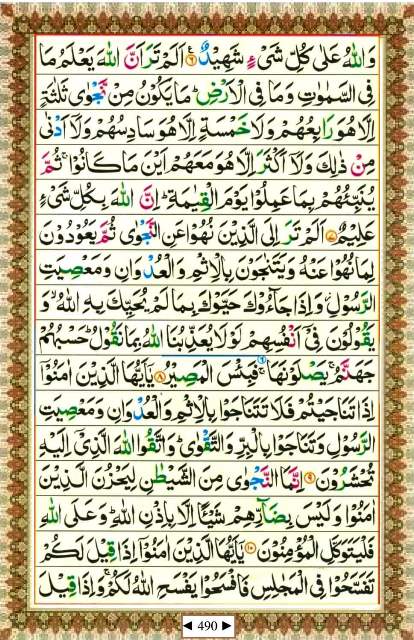 وَاللّٰهُ عَلٰى كُلِّ شَىْءٍ شَهِيْدٌ ۝٦ اَلَمْ تَرَ اَنَّ اللّٰهَ يَعْلَمُ مَا
فِى السَّمٰوٰتِ وَمَا فِى الْاَرْضِ ؕ مَا يَكُوْنُ مِنْ نَّجْوٰى ثَلٰثَةٍ
اِلَّا هُوَ رَابِعُهُمْ وَلَا خَمْسَةٍ اِلَّا هُوَ سَادِسُهُمْ وَلَاۤ اَدْنٰى
مِنْ ذٰلِكَ وَلَاۤ اَكْثَرَ اِلَّا هُوَ مَعَهُمْ اَيْنَ مَا كَانُوْا ۚ ثُمَّ
يُنَبِّئُهُمْ بِمَا عَمِلُوْا يَوْمَ الْقِيٰمَةِ ؕ اِنَّ اللّٰهَ بِكُلِّ شَىْءٍ
عَلِيْمٌ ۝٧ اَلَمْ تَرَ اِلَى الَّذِيْنَ نُهُوْا عَنِ النَّجْوٰى ثُمَّ يَعُوْدُوْنَ
لِمَا نُهُوْا عَنْهُ وَيَتَنٰجَوْنَ بِالْاِثْمِ وَالْعُدْوَانِ وَمَعْصِيَتِ
الرَّسُوْلِ ؗ وَاِذَا جَآءُوْكَ حَيَّوْكَ بِمَا لَمْ يُحَيِّكَ بِهِ اللّٰهُ ۙ وَ
يَقُوْلُوْنَ فِىْۤ اَنْفُسِهِمْ لَوْلَا يُعَذِّبُنَا اللّٰهُ بِمَا نَقُوْلُ ؕ حَسْبُهُمْ
جَهَنَّمُ ۚ يَصْلَوْنَهَا ۚ فَبِئْسَ الْمَصِيْرُ ۝٨ يٰۤاَيُّهَا الَّذِيْنَ اٰمَنُوْۤا
اِذَا تَنَاجَيْتُمْ فَلَا تَتَنَاجَوْا بِالْاِثْمِ وَالْعُدْوَانِ وَمَعْصِيَتِ
الرَّسُوْلِ وَتَنَاجَوْا بِالْبِرِّ وَالتَّقْوٰى ؕ وَاتَّقُوا اللّٰهَ الَّذِىْۤ اِلَيْهِ
تُحْشَرُوْنَ ۝٩ اِنَّمَا النَّجْوٰى مِنَ الشَّيْطٰنِ لِيَحْزُنَ الَّذِيْنَ
اٰمَنُوْا وَلَيْسَ بِضَآرِّهِمْ شَيْـًٔا اِلَّا بِاِذْنِ اللّٰهِ ؕ وَعَلَى اللّٰهِ
فَلْيَتَوَكَّلِ الْمُؤْمِنُوْنَ ۝١٠ يٰۤاَيُّهَا الَّذِيْنَ اٰمَنُوْۤا اِذَا قِيْلَ لَكُمْ
تَفَسَّحُوْا فِى الْمَجٰلِسِ فَافْسَحُوْا يَفْسَحِ اللّٰهُ لَكُمْ ۚ وَاِذَا قِيْلَ
◄ 490 ►